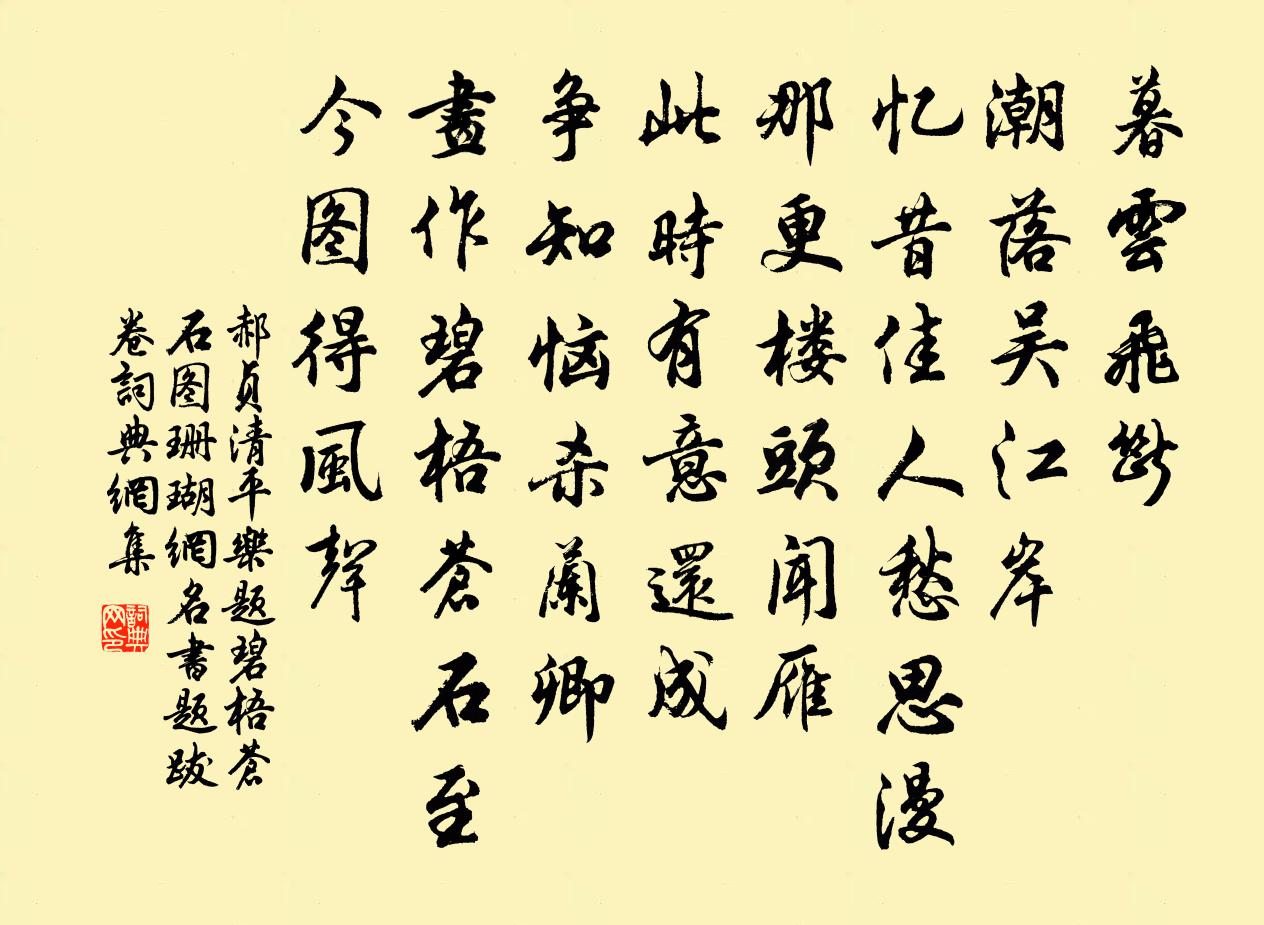 暮雲飛斷
潮落吴江岸
忆昔佳人愁思漫
那更楼頭聞雁
此時有意還成
争知恼杀蘭卿
畫作碧梧蒼石至
今图得風聲
郝貞清平樂題碧梧蒼
石图珊瑚網名書題跋
卷詞典網集
詞典网印